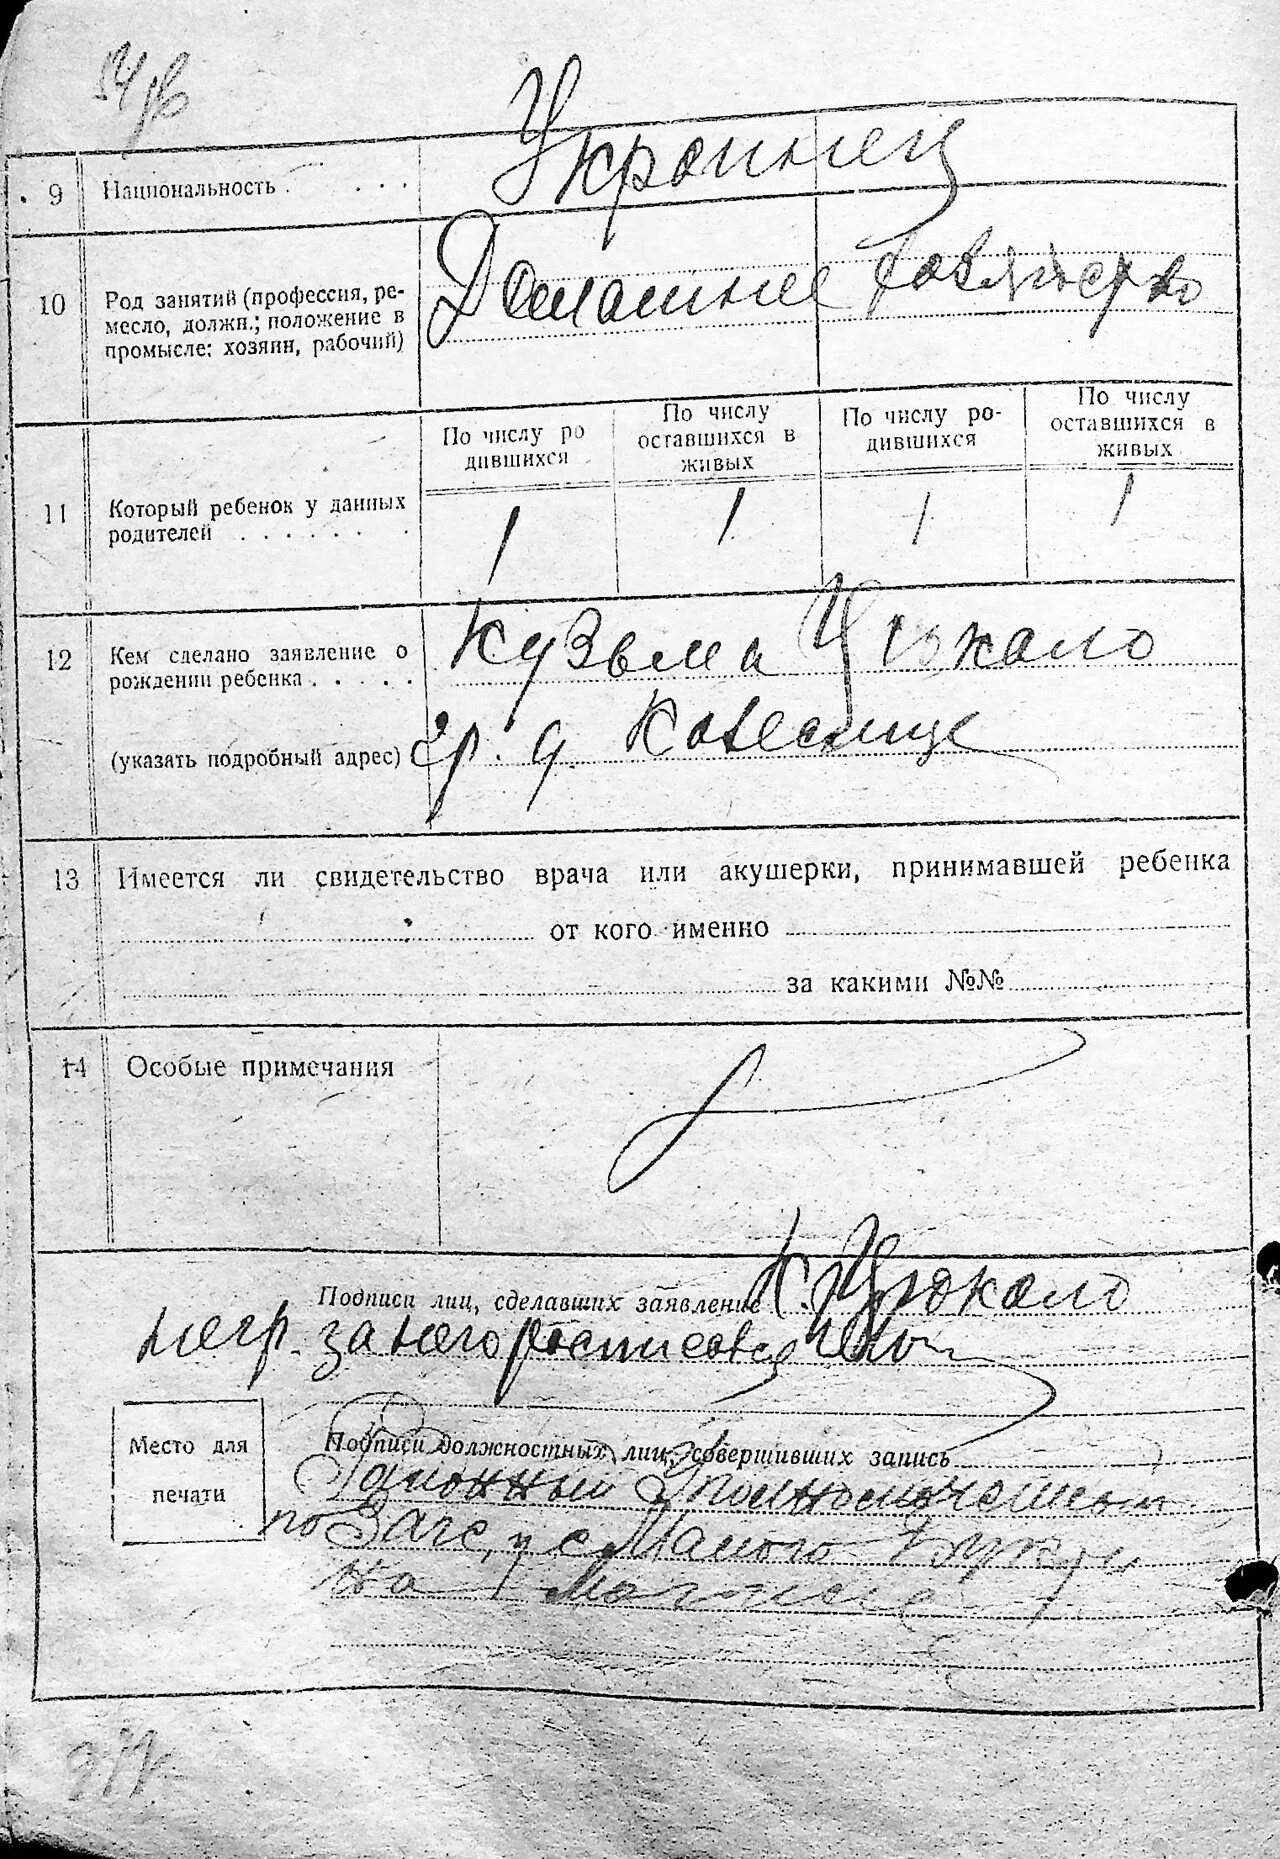 54 об
9 Национальность . . . . Украинец
10 Род занятий (профессия, ре-
месло, должн.; положение в
промысле: хозяин, рабочий)
Домашнее хозяйство
11 Который ребенок у данных
родителей . . . . . . .
По числу ро
дившихся
По числу
оставшихся в
живых
По числу ро-
дившихся
По числу
оставшихся в
живых
1 1 1 1
12 Кем сделано заявление о
рождении ребенка . . . . .
Кузьма Цюкало
(указать подробный адрес) гр. д.
13 Имеется ли свидетельство врача или акушерки, принимавшей ребенка
от кого именно
за какими №№
14 Особые примечания
Подписи лиц, сделавших заявление К. Цюкало
негр. за него росписовся
Место для
печати
Подписи должностных лиц, совершивших запись
Районный
по Загс, у с Малого
на